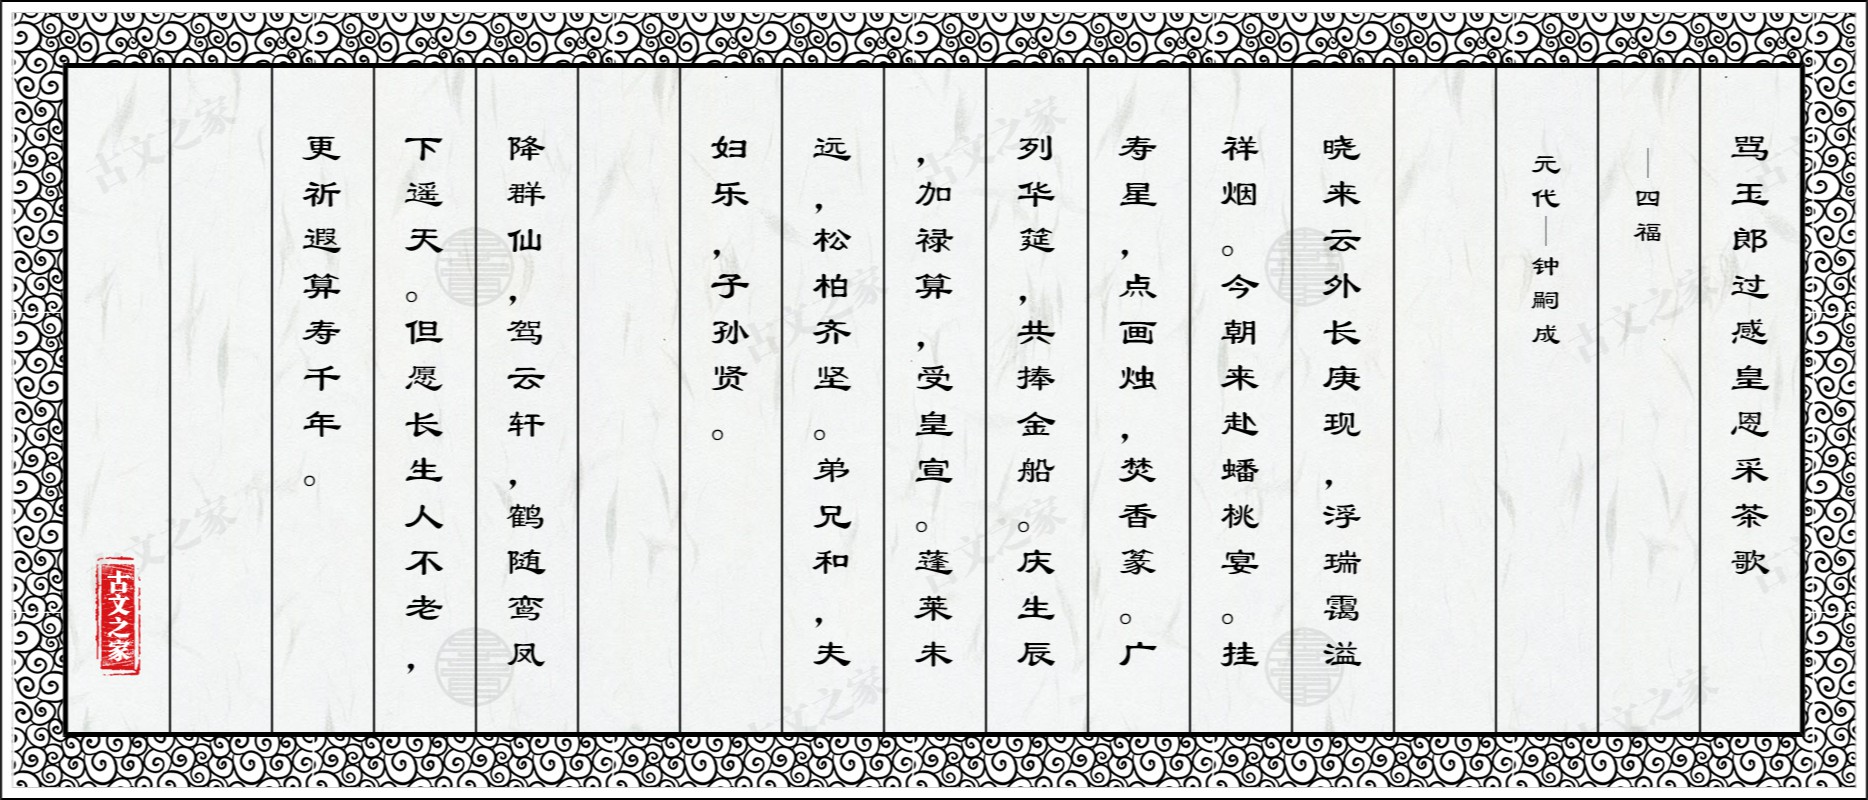 骂玉郎过感皇恩采茶歌
—四福
元代—钟嗣成
晓来云外长庚现，浮瑞霭溢
祥烟。今朝来赴蟠桃宴。挂
寿星，点画烛，焚香篆。广
列华筵，共捧金船。庆生辰
，加禄算，受皇宣。蓬莱未
远，松柏齐坚。弟兄和，夫
妇乐，子孙贤。
降群仙，驾云轩，鹤随鸾凤
下遥天。但愿长生人不老，
更祈遐算寿千年。
古文之家